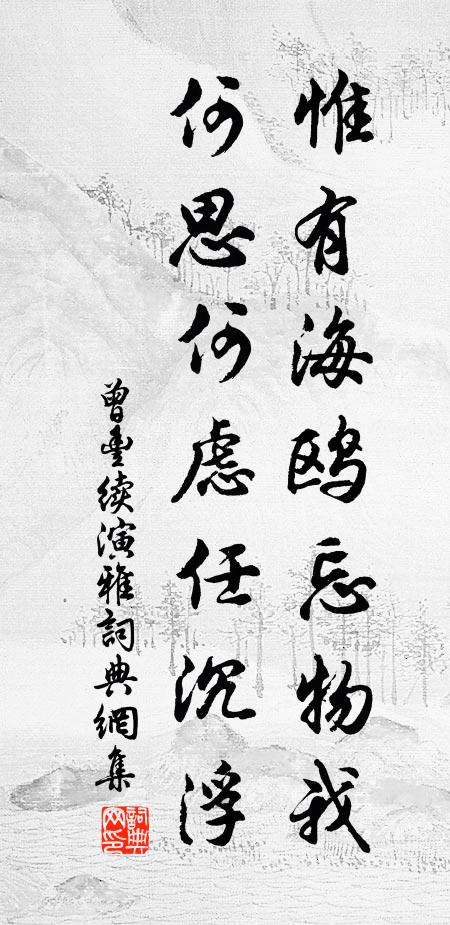 惟有海鸥忘物我
何思何慮任沉浮
曾豐續演雅詞典網集
詞典網印